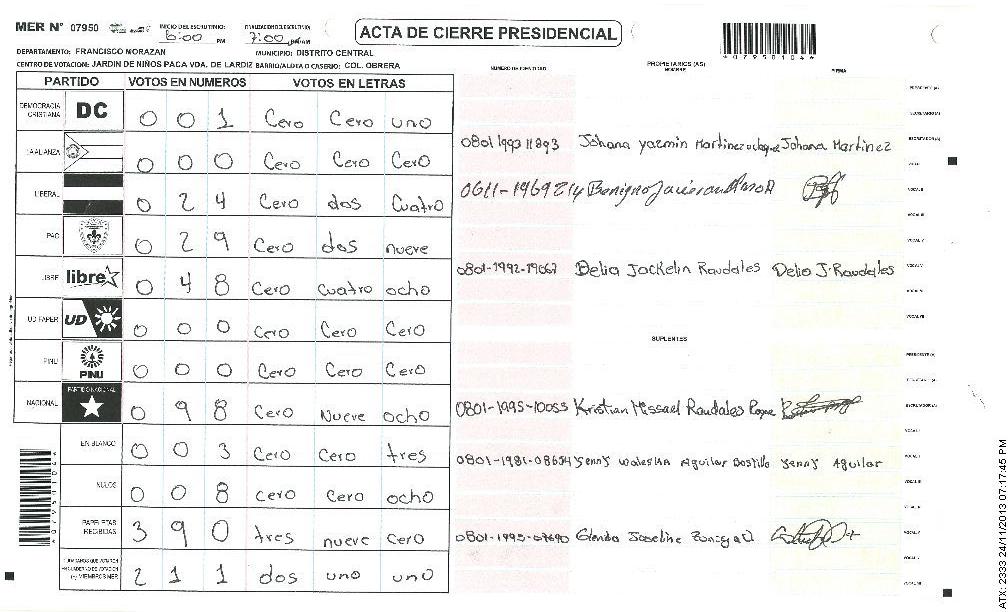 MER N° 07950 INICIO DEL ESCRUTINIO: 6:00 PM FINALIZACION DEL ESCRUTINIO: 7:00 ACTA DE CIERRE PRESIDENCIAL
*07950104*
DEPARTAMENTO: FRANCISCO MORAZAN MUNICIPIO: DISTRITO CENTRAL
CENTRO DE VOTACION: JARDIN DE NIÑOS PACA VDA. DE LARDIZ BARRIO/ALDEA O CASERIO: COL. OBRERA
NUMERO DE IDENTIDAD PROPIETARIOS (AS) NOMBRE FIRMA
PARTIDO VOTOS EN NUMEROS VOTOS EN LETRAS
DEMOCRACIA CRISTIANA DC 0 0 1 Cero Cero uno
LA ALIANZA 0 0 0 Cero Cero Cero
LIBERAL 0 2 4 Cero dos Cuatro
PAC 0 2 9 Cero dos nueve
LIBRE libre 0 4 8 Cero cuatro ocho
UD FAPER UD 0 0 0 Cero Cero Cero
PINU PINU 0 0 0 Cero Cero Cero
NACIONAL PARTIDO NACIONAL 0 9 8 Cero Nueve ocho
EN BLANCO 0 0 3 Cero Cero tres
NULOS 0 0 8 cero Cero ocho
PAPELETAS RECIBIDAS 3 9 0 tres nueve cero
(+) MIEMBROS MER 2 1 1 dos uno uno
0801 1993 11893 Johana yazmin Martinez Johana Martinez
0801-1992-19067 Delia Jackelin Raudales Delia J. Raudales
SUPLENTES
0801-1995-10055 Kristian Missael Raudales
0801-1981-08654 Jenny Waleska Aguilar Bostillo Jenny Aguilar
Glenda Joseline
PRESIDENTE (A)
SECRETARIO (A)
ESCRUTADOR (A)
VOCAL I
VOCAL II
VOCAL III
VOCAL IV
VOCAL V
VOCAL VI
VOCAL VII
PRESIDENTE (A)
SECRETARIO (A)
ESCRUTADOR (A)
VOCAL I
VOCAL II
VOCAL III
ATX: 2333 24/11/2013 07:17:45 PM